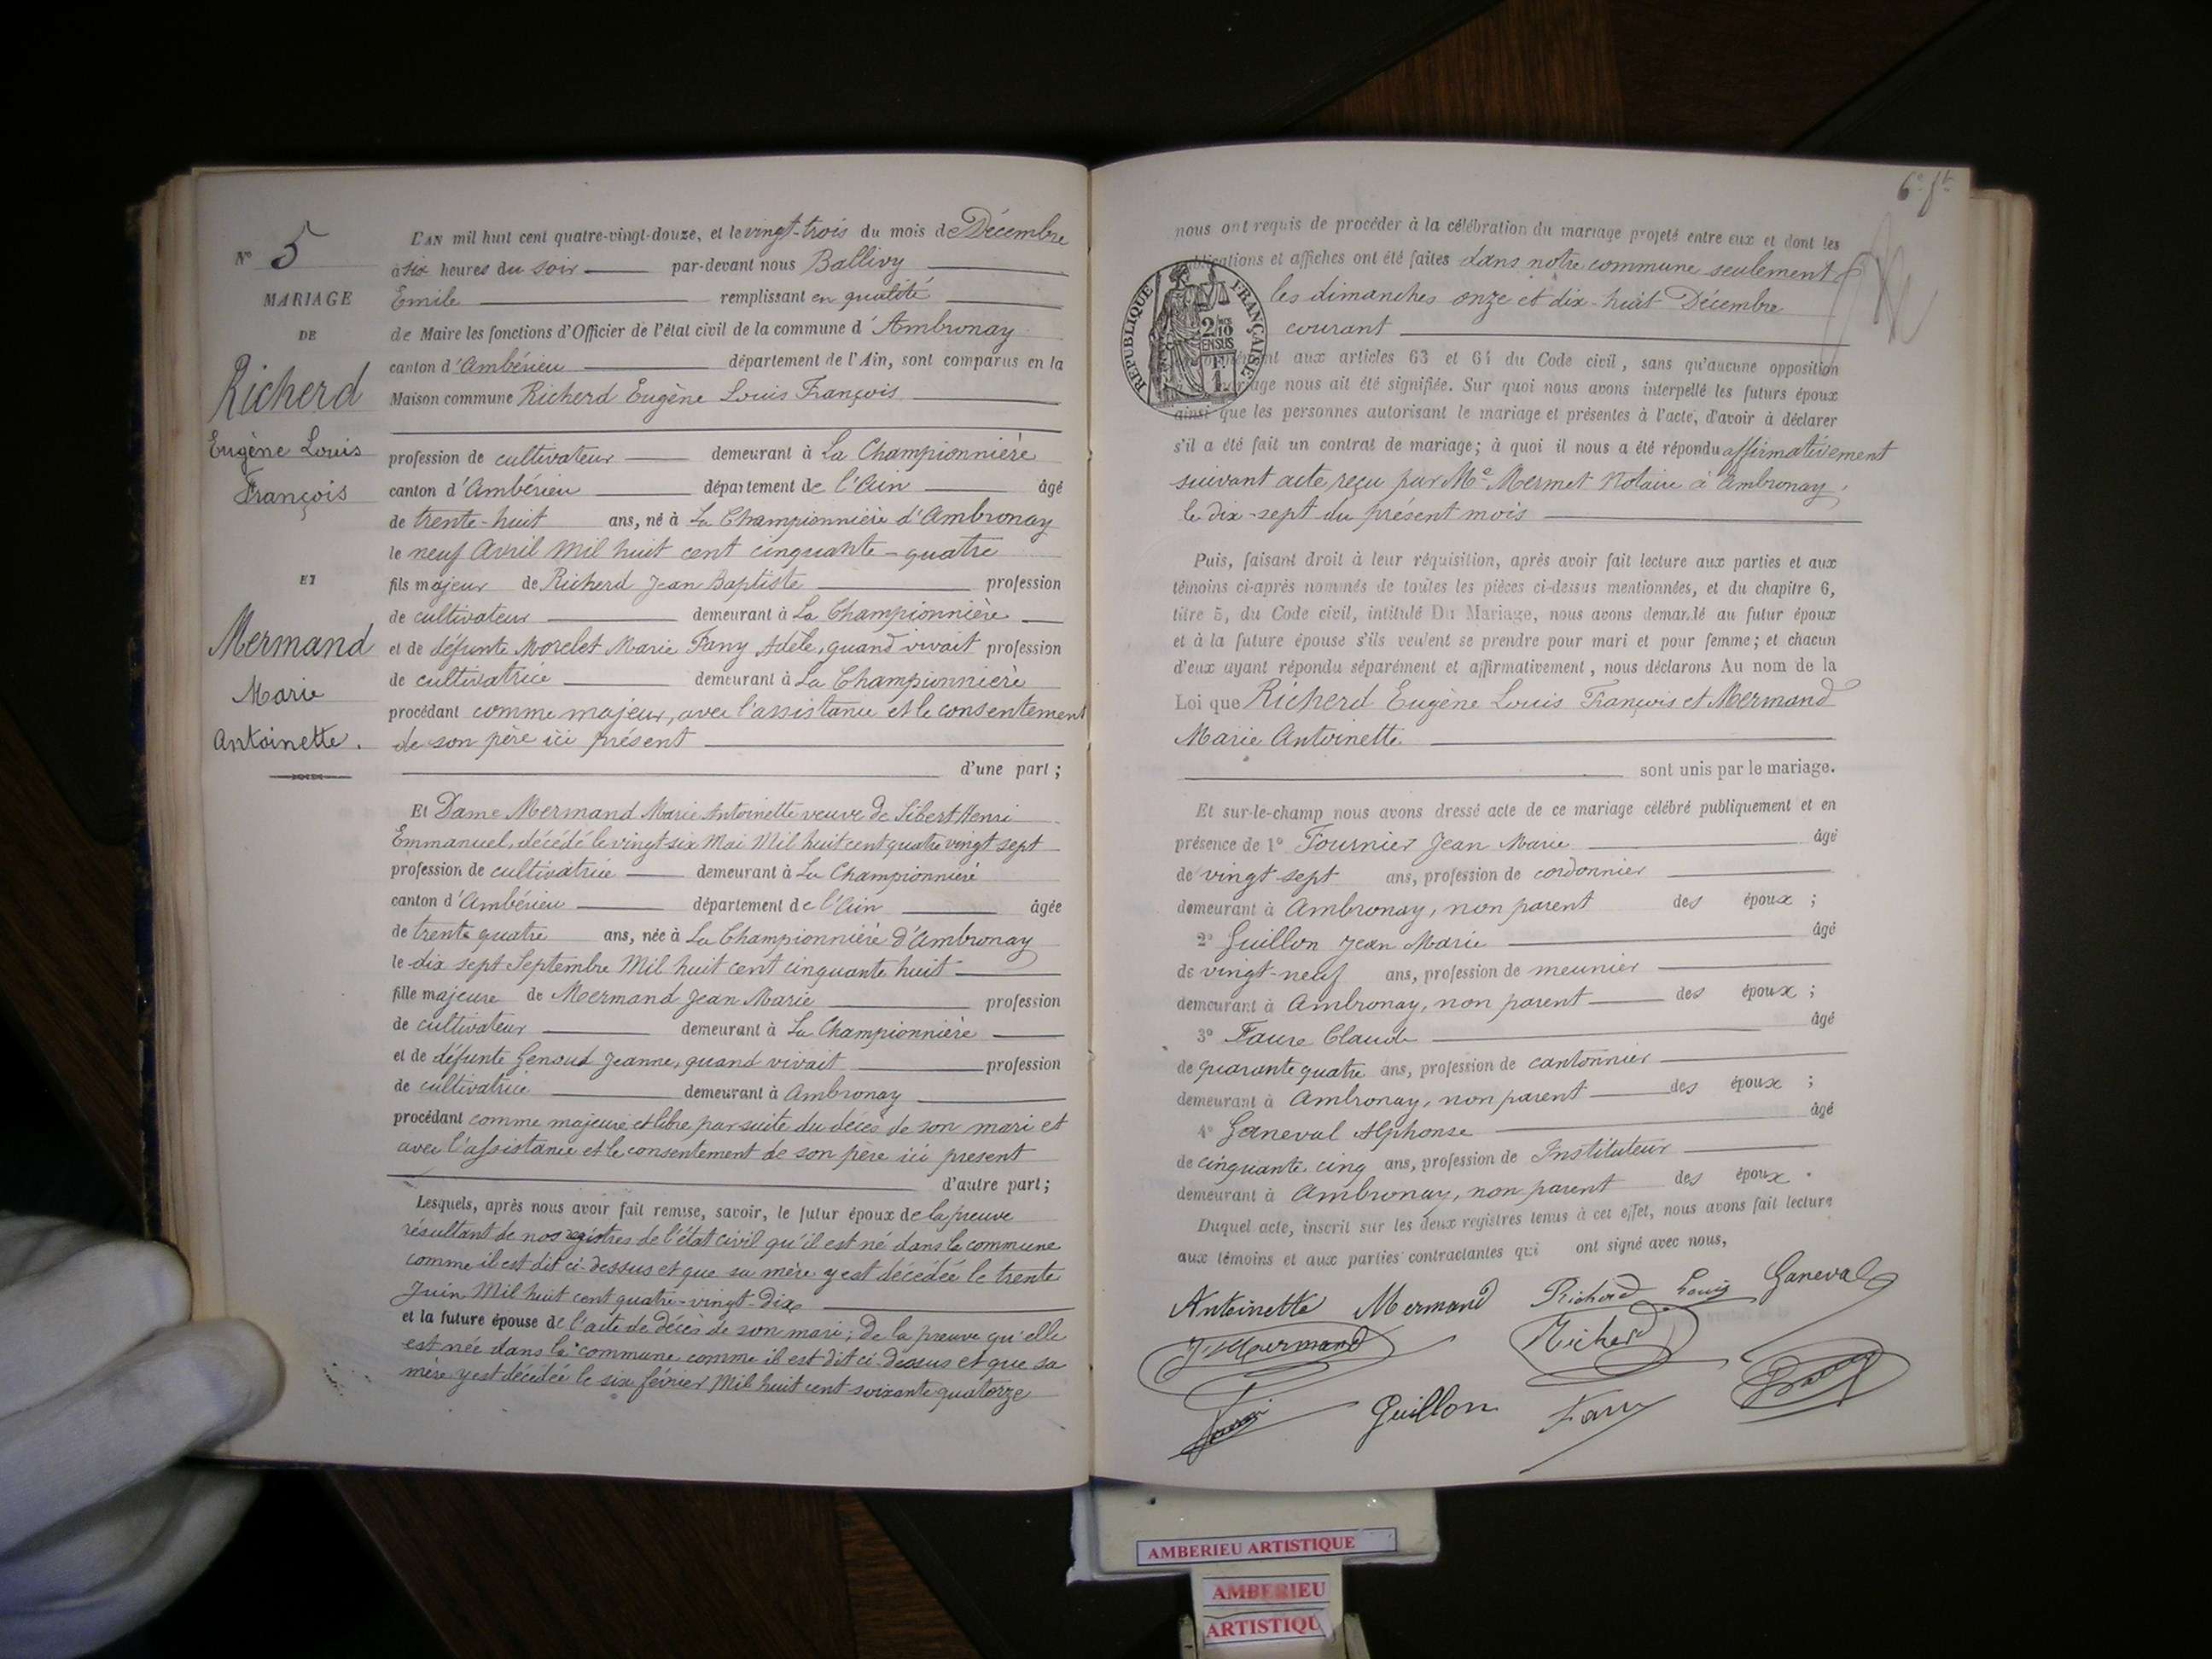 N° 5
MARIAGE
DE
Richerd
Eugène Louis
François
ET
Mermand
Marie
Antoinette.
L'AN mil huit cent quatre-vingt-douze, et le vingt-trois du mois de Décembre
à six heures du soir par-devant nous Ballivy
Emile remplissant en qualité
de Maire les fonctions d'Officier de l'état civil de la commune d'Ambronay
canton d'Ambérieu département de l'Ain, sont comparus en la
Maison commune Richerd Eugène Louis François
profession de cultivateur demeurant à La Championnière
canton d'Ambérieu département de l'Ain âgé
de trente-huit ans, né à La Championnière d'Ambronay
le neuf Avril Mil huit cent cinquante-quatre
fils majeur de Richerd Jean Baptiste profession
de cultivateur demeurant à La Championnière
et de défunte Morelet Marie Fany Adèle, quand vivait profession
de cultivatrice demeurant à La Championnière
procédant comme majeur, avec l'assistance et le consentement
de son père ici présent
d'une part ;
Et Dame Mermand Marie Antoinette veuve de Sibert Henri
Emmanuel, décédé le vingt six Mai Mil huit cent quatre vingt sept
profession de cultivatrice demeurant à La Championnière
canton d'Ambérieu département de l'Ain âgée
de trente quatre ans, née à La Championnière d'Ambronay
le dix sept Septembre Mil huit cent cinquante huit
fille majeure de Mermand Jean Marie profession
de cultivateur demeurant à La Championnière
et de défunte Genoud Jeanne, quand vivait profession
de cultivatrice demeurant à Ambronay
procédant comme majeure et libre par suite du décès de son mari et
avec l'assistance et le consentement de son père ici present
d'autre part ;
Lesquels, après nous avoir fait remise, savoir, le futur époux de la preuve
résultant de nos registres de l'état civil qu'il est né dans la commune
comme il est dit ci-dessus et que sa mère y est décédée le trente
Juin Mil huit cent quatre-vingt-dix
et la future épouse de l'acte de décès de son mari ; de la preuve qu'elle
est née dans la commune comme il est dit ci-dessus et que sa
mère y est décédée le six février Mil huit cent soixante quatorze
6e ft
nous ont requis de procéder à la célébration du mariage projeté entre eux et dont les
publications et affiches ont été faites dans notre commune seulement
les dimanches onze et dix-huit Décembre
courant
RÉPUBLIQUE FRANÇAISE
2/10 EN SUS
1 F
aux articles 63 et 64 du Code civil, sans qu'aucune opposition
mariage nous ait été signifiée. Sur quoi nous avons interpellé les futurs époux
ainsi que les personnes autorisant le mariage et présentes à l'acte, d'avoir à déclarer
s'il a été fait un contrat de mariage ; à quoi il nous a été répondu affirmativement
suivant acte reçu par Me Mermet Notaire à Ambronay,
le dix-sept du présent mois
Puis, faisant droit à leur réquisition, après avoir fait lecture aux parties et aux
témoins ci-après nommés de toutes les pièces ci-dessus mentionnées, et du chapitre 6,
titre 5, du Code civil, intitulé Du Mariage, nous avons demandé au futur époux
et à la future épouse s'ils veulent se prendre pour mari et pour femme ; et chacun
d'eux ayant répondu séparément et affirmativement, nous déclarons Au nom de la
Loi que Richerd Eugène Louis François et Mermand
Marie Antoinette
sont unis par le mariage.
Et sur-le-champ nous avons dressé acte de ce mariage célébré publiquement et en
présence de 1° Fournier Jean Marie âgé
de vingt sept ans, profession de cordonnier
demeurant à Ambronay, non parent des époux ;
2° Guillon Jean Marie âgé
de vingt-neuf ans, profession de meunier
demeurant à Ambronay, non parent des époux ;
3° Faure Claude âgé
de quarante quatre ans, profession de cantonnier
demeurant à Ambronay, non parent des époux ;
4° Ganeval Alphonse âgé
de cinquante cinq ans, profession de Instituteur
demeurant à Ambronay, non parent des époux.
Duquel acte, inscrit sur les deux registres tenus à cet effet, nous avons fait lecture
aux témoins et aux parties contractantes qui ont signé avec nous,
Antoinette Mermand Richerd Louis Ganeval
J. Mermand Richerd
Guillon Faure
AMBERIEU ARTISTIQUE
AMBERIEU
ARTISTIQU